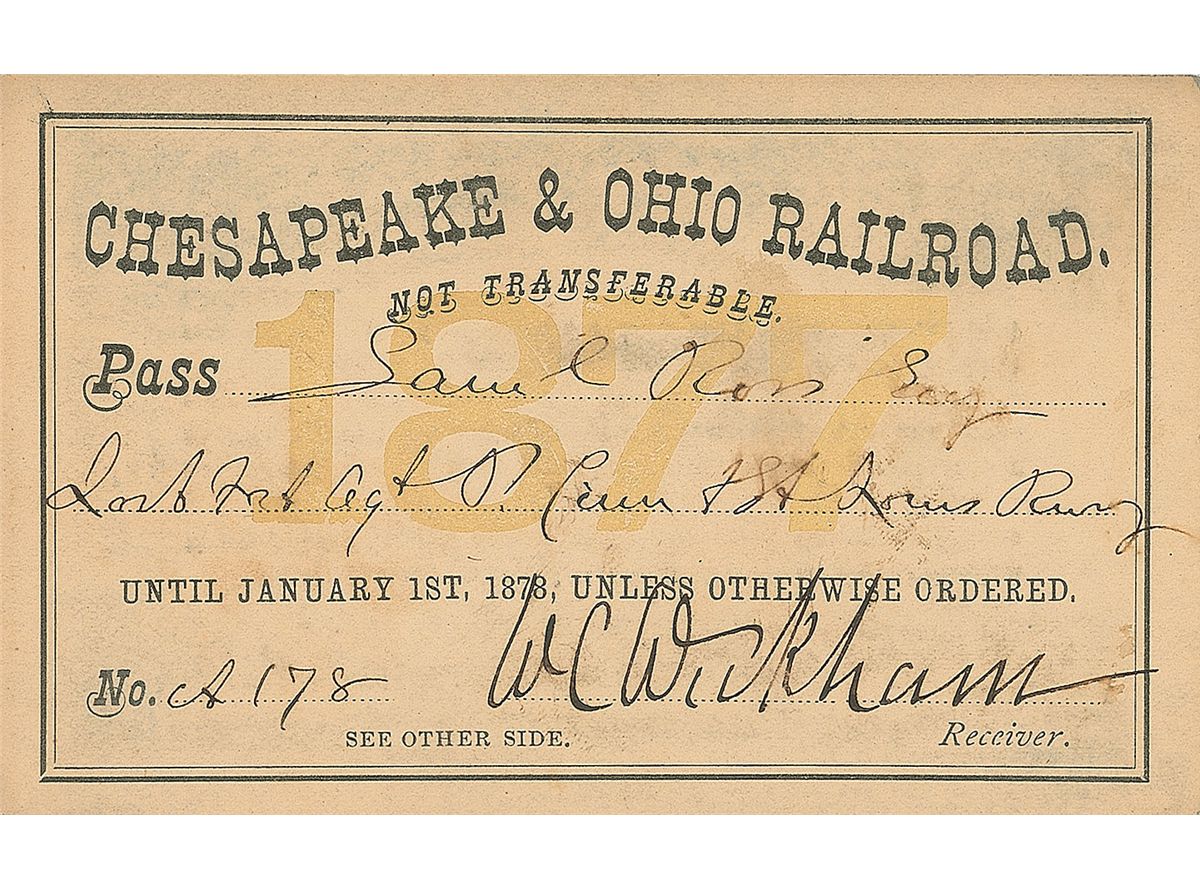 CHESAPEAKE & OHIO RAILROAD.
NOT TRANSFERABLE.
1877
Pass Saml Ross Esq
Frt Agt P. Cinn & St Louis Rwy
UNTIL JANUARY 1ST, 1878, UNLESS OTHERWISE ORDERED.
No. A 178 WC Wickham
SEE OTHER SIDE. Receiver.